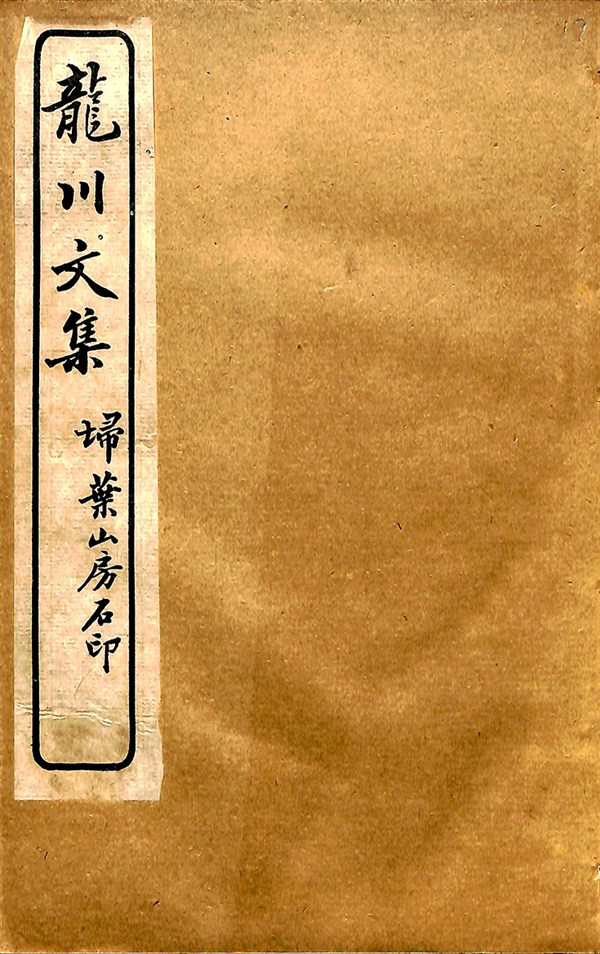 龍川文集
埽葉山房石印
17